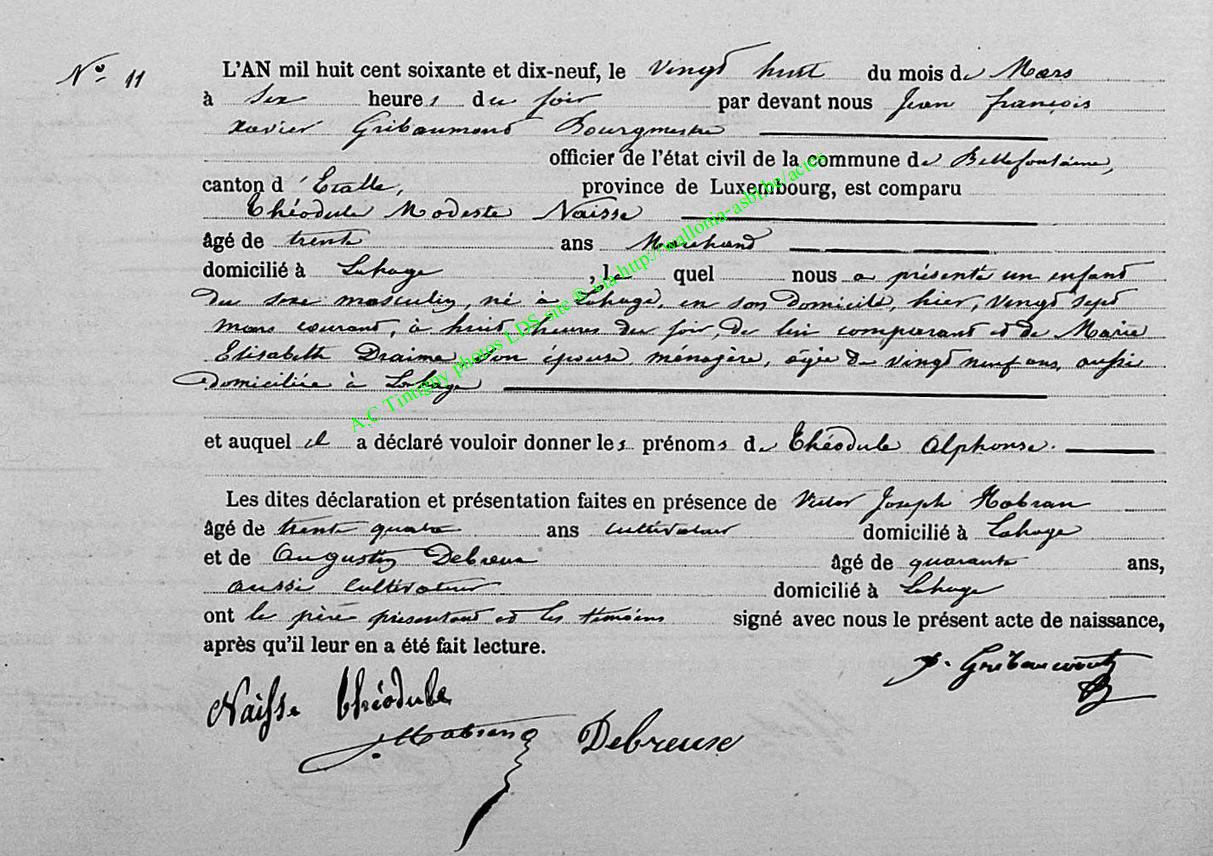 N° 11
L'AN mil huit cent soixante et dix-neuf, le vingt huit du mois de Mars
à six heures du soir par devant nous Jean françois
xavier Gribaumont Bourgmestre
officier de l'état civil de la commune de Bellefontaine,
canton d'Etalle, province de Luxembourg, est comparu
Théodule Modeste Naisse
âgé de trente ans Marchand
domicilié à Lahage, lequel nous a présenté un enfant
du sexe masculin, né à Lahage, en son domicile, hier, vingt sept
mars courant, à huit heures du soir, de lui comparant et de Marie
Elisabeth Draime son épouse ménagère, âgée de vingt neuf ans, aussi
domiciliée à Lahage
et auquel il a déclaré vouloir donner les prénoms de Théodule Alphonse.
Les dites déclaration et présentation faites en présence de Victor Joseph Habran
âgé de trente quatre ans cultivateur domicilié à Lahage
et de Augustin Debreux âgé de quarante ans,
aussi cultivateur domicilié à Lahage
ont le père présentant et les témoins signé avec nous le présent acte de naissance,
après qu'il leur en a été fait lecture.
Gribaumont
Naisse théodule
J. Habran Debreuse
A.C Tintigny photos LDS site © via http://wallonia-asbl.be/actes